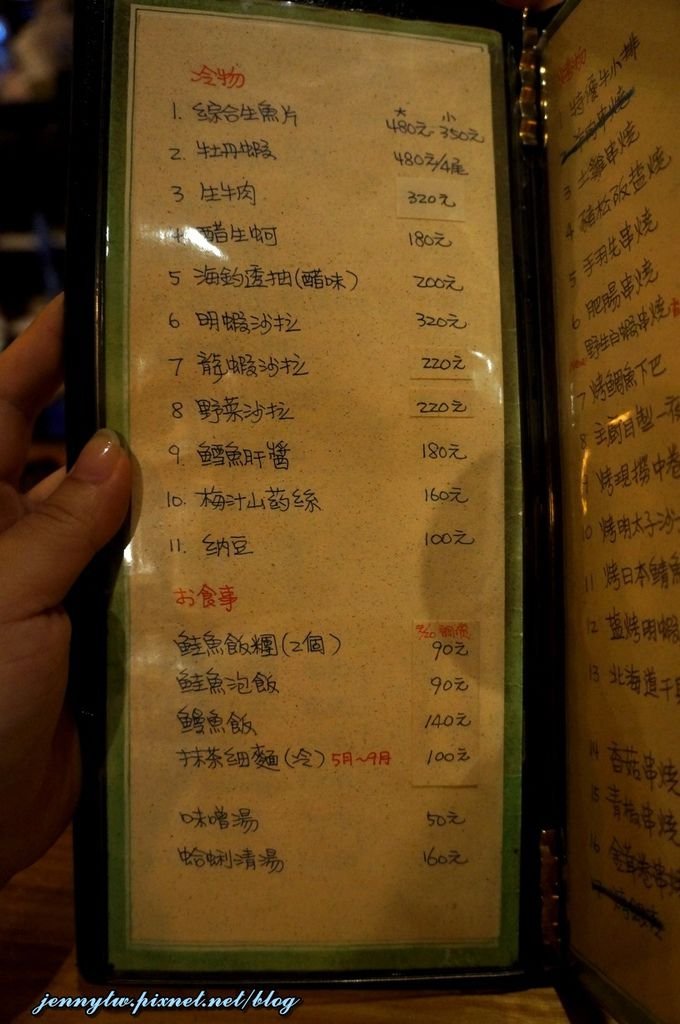 冷物
大 小
1. 綜合生魚片 480元 350元
2. 牡丹蝦 480元/4尾
3 生牛肉 320元
4 醋生蚵 180元
5 海釣透抽(醋味) 200元
6 明蝦沙拉 320元
7 龍蝦沙拉 220元
8 野菜沙拉 220元
9. 鱈魚肝醬 180元
10. 梅汁山药絲 160元
11. 纳豆 100元
お食事
鮭魚飯糰(2個) 90元
鮭魚泡飯 90元
鰻魚飯 140元
抹茶細麵(冷) 5月~9月 100元
味噌湯 50元
蛤蜊清湯 160元
特優牛小排
3 土雞串燒
4 豬松阪盐燒
5 手羽先串燒
6 肥腸串燒
野生白蝦串燒
7 烤鯛魚下巴
8 主廚自製一夜
烤現撈中卷
10 烤明太子沙
11 烤日本鯖魚
12 盐烤明蝦
13 北海道干貝
14 香菇串燒
15 青椒串燒
16 金茸卷串燒
jennytw.pixnet.net/blog